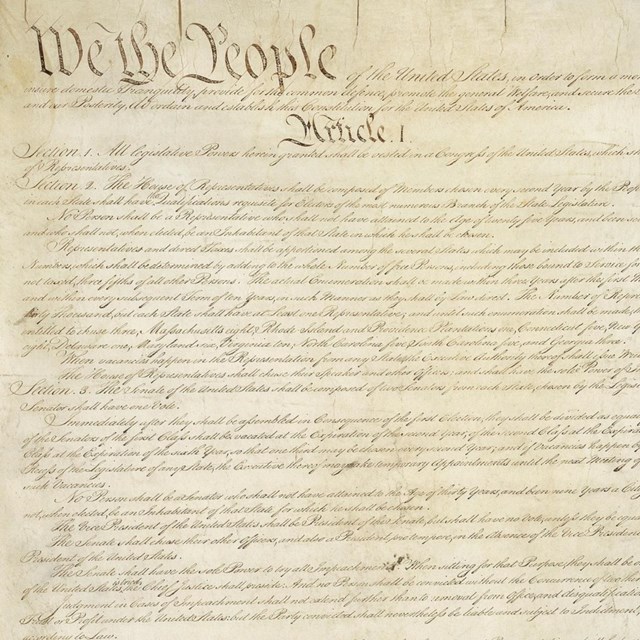 We the People of the United States, in Order to form a mo
insure domestic Tranquility, provide for the common defence, promote the general Welfare, and secure the
and our Posterity, do ordain and establish this Constitution for the United States of America.
Article. I.
Section. 1. All legislative Powers herein granted shall be vested in a Congress of the United States, which sh
of Representatives.
Section. 2. The House of Representatives shall be composed of Members chosen every second Year by the Peop
in each State shall have the Qualifications requisite for Electors of the most numerous Branch of the State Legislature.
No Person shall be a Representative who shall not have attained to the Age of twenty five Years, and been se
and who shall not, when elected, be an Inhabitant of that State in which he shall be chosen.
Representatives and direct Taxes shall be apportioned among the several States which may be included within th
Numbers, which shall be determined by adding to the whole Number of free Persons, including those bound to Service for
not taxed, three fifths of all other Persons. The actual Enumeration shall be made within three Years after the first M
and within every subsequent Term of ten Years, in such Manner as they shall by Law direct. The Number of Repre
thirty Thousand, but each State shall have at Least one Representative; and until such enumeration shall be made,
entitled to chuse three, Massachusetts eight, Rhode Island and Providence Plantations one, Connecticut five, New
eight, Delaware one, Maryland six, Virginia ten, North Carolina five, South Carolina five, and Georgia three.
When vacancies happen in the Representation from any State, the Executive Authority thereof shall issue Wri
The House of Representatives shall chuse their Speaker and other Officers; and shall have the sole Power of
Section. 3. The Senate of the United States shall be composed of two Senators from each State, chosen by the Legis
Senator shall have one Vote.
Immediately after they shall be assembled in Consequence of the first Election, they shall be divided as equa
of the Senators of the first Class shall be vacated at the Expiration of the second Year, of the second Class at the Expira
Class at the Expiration of the sixth Year, so that one third may be chosen every second Year; and if Vacancies happen by
Recess of the Legislature of any State, the Executive thereof may make temporary Appointments until the next Meeting of
such Vacancies.
No Person shall be a Senator who shall not have attained to the Age of thirty Years, and been nine Years a Citi
not, when elected, be an Inhabitant of that State for which he shall be chosen.
The Vice President of the United States shall be President of the Senate, but shall have no Vote, unless they be equa
The Senate shall chuse their other Officers, and also a President pro tempore, in the Absence of the Vice Presiden
President of the United States.
The Senate shall have the sole Power to try all Impeachments. When sitting for that Purpose, they shall be
of the United States, the Chief Justice shall preside: And no Person shall be convicted without the Concurrence of two thi
Judgment in Cases of Impeachment shall not extend further than to removal from Office, and disqualificat
Trust or Profit under the United States: but the Party convicted shall nevertheless be liable and subject to Indictment
according to Law.